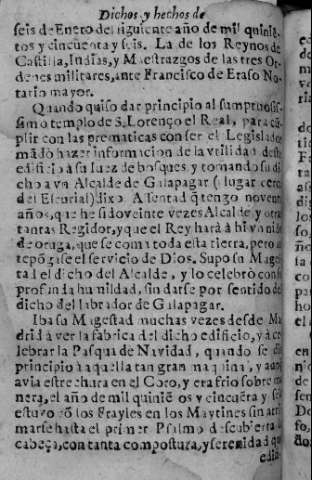 Dichos y hechos de
seis de Enero del siguiente año de mil quiniẽ-
tos y cincuenta y seis. La de los Reynos de
Castilla, Indias, y Maestrazgos de las tres Or-
denes militares, ante Francisco de Eraso No-
tario mayor.
Quando quiso dar principio al sumptuosis-
simo templo de S. Lorenço el Real, para cũ-
plir con las prematicas con ser el Legislador
mãdò hazer informacion de la vtilidad deste
edificio à su Iuez de bosques, y tomando su di-
cho a vn Alcalde de Galapagar (lugar cerca
del Escurial) dixo. Assentad q̃ tengo nouenta
años, que he sido veinte vezes Alcalde, y otras
tantas Regidor, y que el Rey harà àhi vn nido
de oruga, que se coma toda esta tierra, pero an-
tepõgase el seruicio de Dios. Supo su Mages-
tad el dicho del Alcalde, y lo celebrò con su
profunda humildad, sin darse por sentido del
dicho del labrador de Galapagar.
Iba su Magestad muchas vezes desde Ma-
drid à ver la fabrica del dicho edificio, y à ce-
lebrar la Pasqua de Navidad, quando se diò
principio à aquella tan gran maquina, y aun
avia estrechura en el Coro, y era frio sobre ma-
nera, el año de mil quiniẽ os y cincuẽta y seis
estuvo cõ los Frayles en los Maytines sin arri-
marse hasta el primer Psalmo descubierta la
cabeça, con tanta compostura, y serenidad que
edifi-